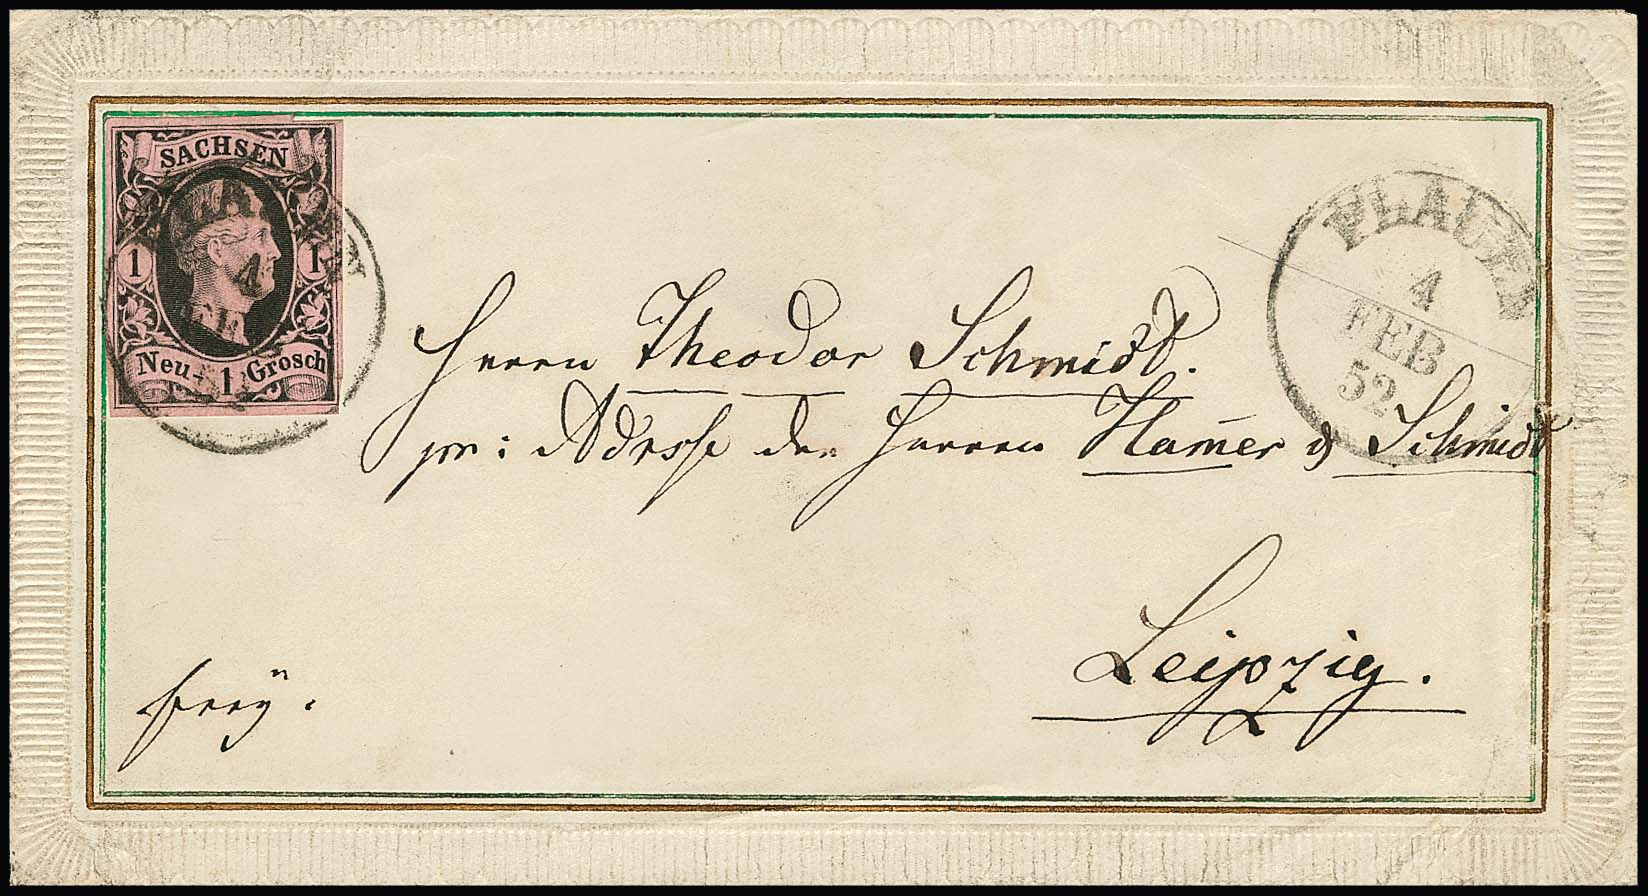 SACHSEN
1 1
Neu- 1 Grosch
PLAUEN
4
FEB
52
Herrn Theodor Schmidt.
pr: Adresse der Herren Ham̅er & Schmidt
Leipzig.
frey.